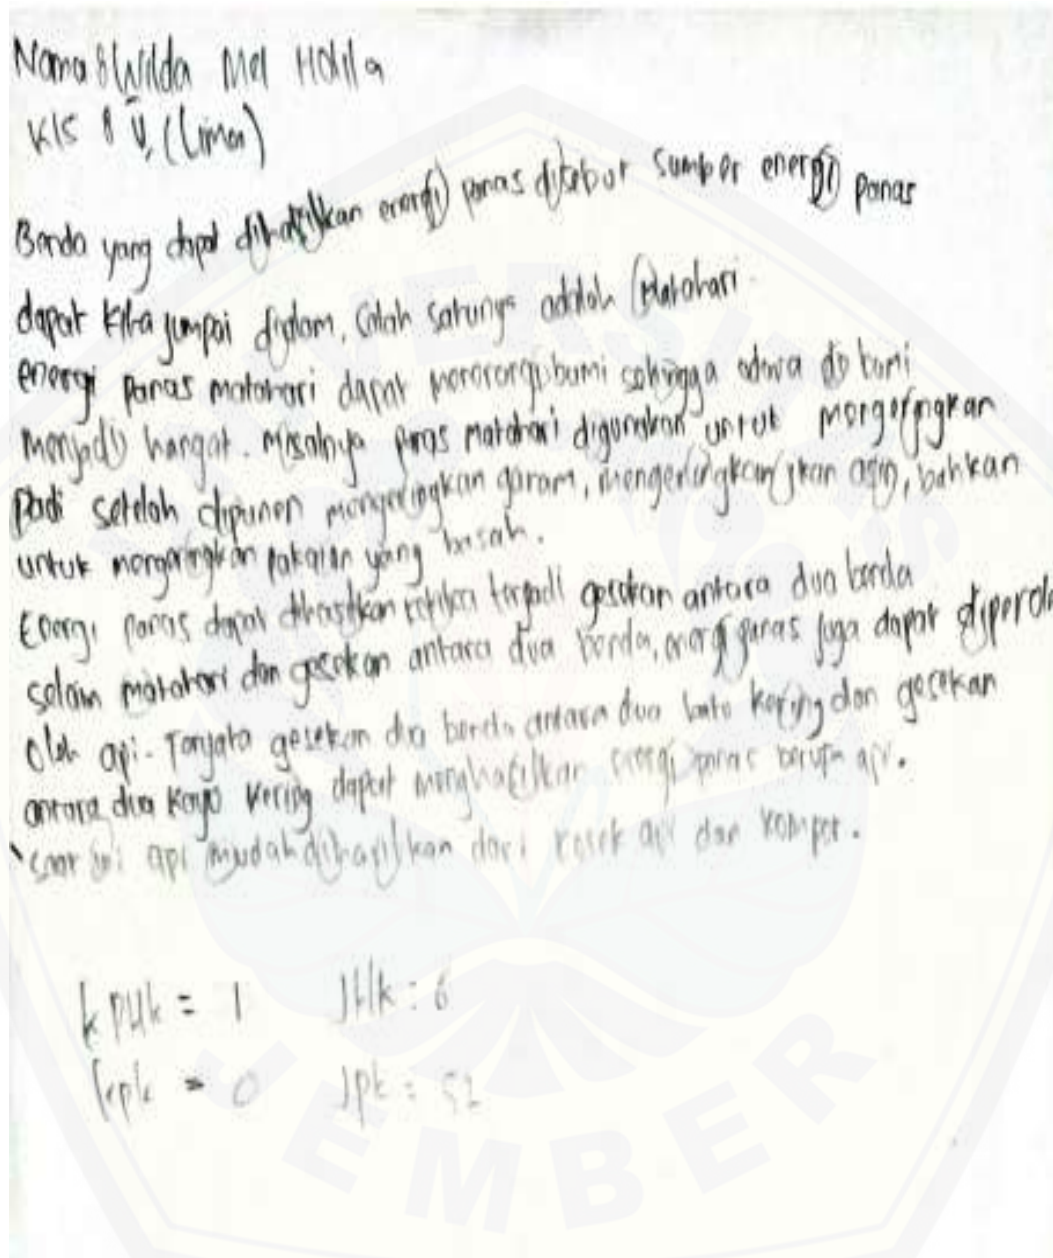 Nama : Wilda Mei Holila
Kls : V, (Lima)
Benda yang dapat dihasilkan energi panas disebut sumber energi panas
dapat kita jumpai dialam, salah satunya adalah Matahari.
energi panas matahari dapat bumi sehingga udara di bumi
menjadi hangat. Misalnya panas matahari digunakan untuk mengeringkan
padi setelah dipanen mengeringkan garam, mengeringkan ikan asin, bahkan
untuk mengeringkan pakaian yang basah.
Energi panas dapat dihasilkan ketika terjadi gesekan antara dua benda
selain matahari dan gesekan antara dua benda, energi panas juga dapat
Oleh api. gesekan dua benda antara dua batu kering dan gesekan
antara dua kayu kering dapat menghasilkan energi panas berupa api.
saat ini api mudah dihasilkan dari korek api dan kompor.
kPHk = 1 JHk : 6
kpk = 0 Jpk : 52
UNIVERSITAS
JEMBER